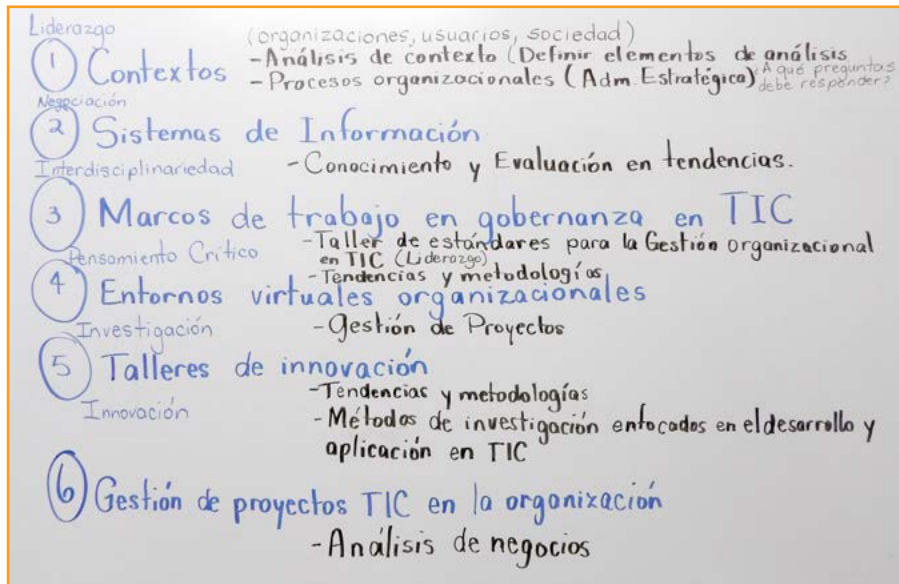 Liderazgo
(organizaciones, usuarios, sociedad)
1 Contextos
-Análisis de contexto (Definir elementos de análisis
-Procesos organizacionales (Adm. Estratégica) ¿A qué preguntas debe responder?
Negociación
2 Sistemas de Información
Interdisciplinariedad
-Conocimiento y Evaluación en tendencias.
3 Marcos de trabajo en gobernanza en TIC
Pensamiento Crítico
-Taller de estándares para la Gestión organizacional
en TIC (Liderazgo)
-Tendencias y metodologías
4 Entornos virtuales organizacionales
Investigación
-Gestión de Proyectos
5 Talleres de innovación
-Tendencias y metodologías
Innovación
-Métodos de investigación enfocados en el desarrollo y
aplicación en TIC
6 Gestión de proyectos TIC en la organización
-Análisis de negocios